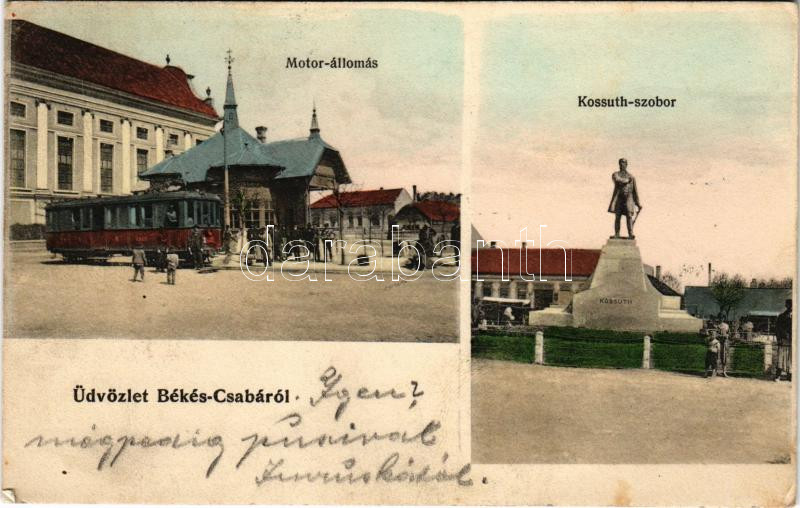 Motor-állomás
Kossuth-szobor
KOSSUTH
darabanth
Üdvözlet Békés-Csabáról. Igen?
mégpedig